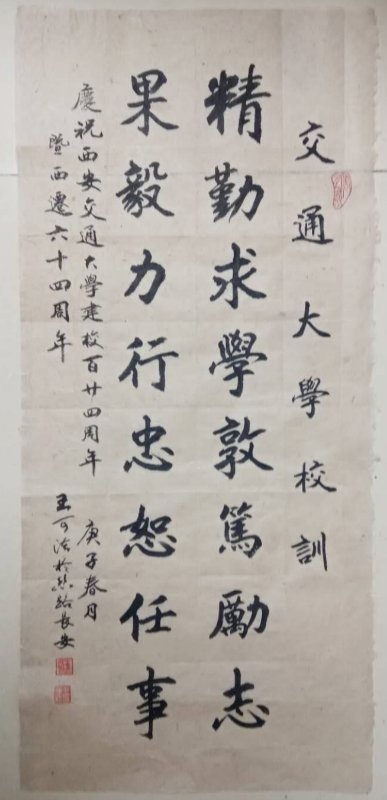 交通大學校訓
精勤求學敦篤勵志
果毅力行忠恕任事
慶祝西安交通大學建校百廿四周年
暨西遷六十四周年
庚子春月
王可治於長安